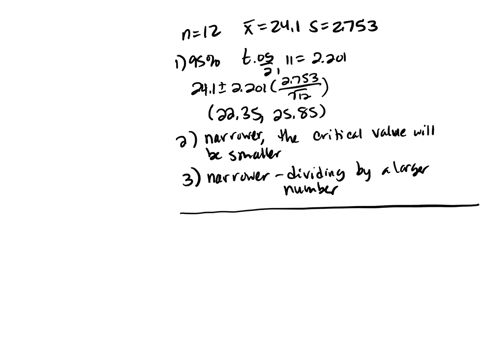 n=12 x̄=24.1 s=2.753
1) 95% t.05/2, 11 = 2.201
24.1 ± 2.201(2.753/√12)
(22.35, 25.85)
2) narrower, the critical value will
be smaller
3) narrower - dividing by a larger
number